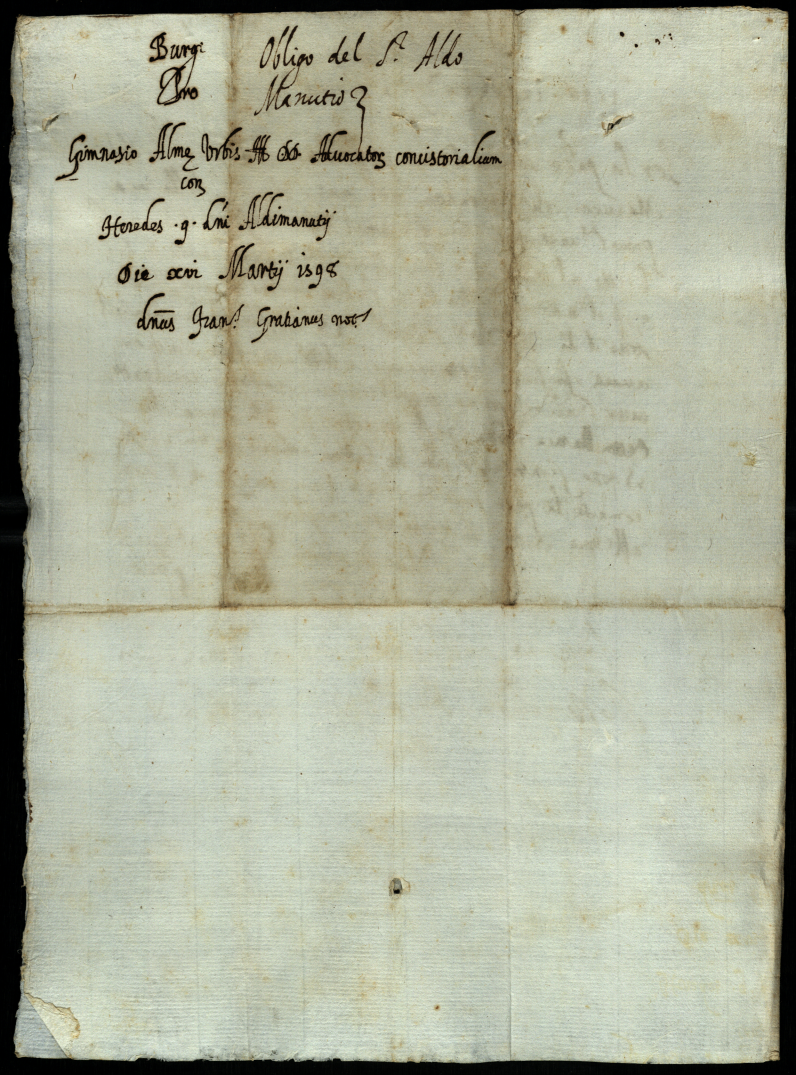 Burg:
Obligo del S.r Aldo
Pro
Manutio
Gimnasio Alme Urbis et DD. Advocator consistorialium
con
Heredes .q. dni Aldimanutij
Die xvi Martij 1598
dnus Fran.s Gratianus not.s